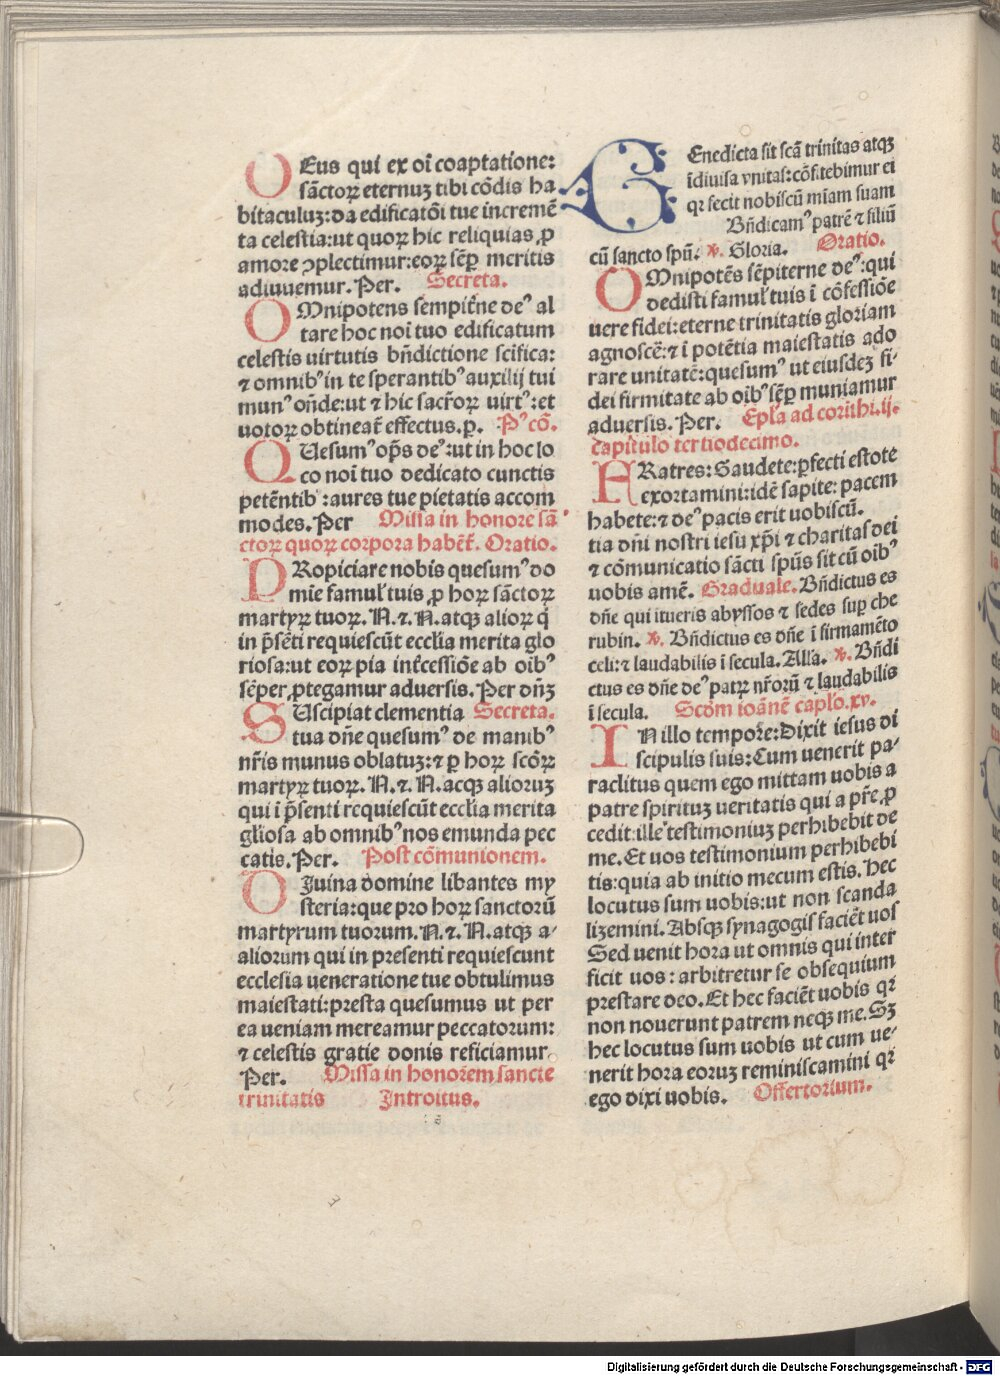 DEus qui ex oi͂ coaptatione:
sa͂ctoꝝ eternuꝫ tibi co͂dis ha
bitaculuꝫ: da edificato͂i tue increme͂
ta celestia: ut quoꝝ hic reliquias ꝓ
amore ↄplectimur: eoꝝ se͂ꝑ meritis
adiuuemur. Per. Secreta.
OMnipotens sempit͛ne deꝰ al
tare hoc noi͂ tuo edificatum
celestis uirtutis bn͂dictione sc͂ifica:
⁊ omnibꝰ in te sperantibꝰ auxilij tui
munꝰ on͂de: ut ⁊ hic sacr͂oꝝ uirtꝰ: et
uotoꝝ obtineat͛ effectus. ꝑ. Pꝰ co͂.
QUesumꝰ op͂s deꝰ: ut in hoc lo
co noi͂ tuo dedicato cunctis
pete͂ntibꝰ: aures tue pietatis accom
modes. Per Missa in honore sa͂
ctoꝝ quoꝝ corpora habe͂t͛. Oratio.
PRopiciare nobis quesumꝰ do
mi͂e famuł tuis ꝓ hoꝝ sa͂ctoꝝ
martyꝝ tuoꝝ. N. ⁊. N. atqꝫ alioꝝ q͛
in p͂se͂ti requiescu͂t eccl͂ia merita glo
riosa: ut eoꝝ pia int͛cessio͂e ab oi͂bꝰ
se͂per ꝓtegamur aduersis. Per dn͂ꝫ
SUscipiat clementia Secreta.
tua dn͂e quesumꝰ de manibꝰ
nr͂is munus oblatuꝫ: ⁊ ꝑ hoꝝ sc͂oꝝ
martyꝝ tuoꝝ. N. ⁊. N. atqꝫ alioruꝫ
qui i͂ p͂senti requiescu͂t eccl͂ia merita
gl͂iosa ab omnibꝰ nos emunda pec
catis. Per. Post co͂munionem.
DIuina domine libantes my
steria: que pro hoꝝ sanctoru͂
martyrum tuorum. N. ⁊. N. atqꝫ a⸗
aliorum qui in presenti requiescunt
ecclesia ueneratione tue obtulimus
maiestati: presta quesumus ut per
ea ueniam mereamur peccatorum:
⁊ celestis gratie donis reficiamur.
Per. Missa in honorem sancte
trinitatis Introitus.
BEnedicta sit sca͂ trinitas atqꝫ
i͂diuisa vnitas: co͂fitebimur ei
qꝛ fecit nobiscu͂ mi͂am suam
Bn͂dicamꝰ patre͂ ⁊ filiu͂
cu͂ sancto spu͂. ℣. Gloria. Oratio.
OMnipote͂s se͂piterne deꝰ: qui
dedisti famuł tuis i͂ co͂fessio͂e
uere fidei: eterne trinitatis gloriam
agnosce͂: ⁊ i͂ pote͂tia maiestatis ado
rare unitate͂: quesumꝰ ut eiusdeꝫ fi⸗
dei firmitate ab oi͂bꝰ se͂ꝑ muniamur
aduersis. Per. Epl͂a ad corithi. ij.
capitulo tertiodecimo.
FRatres: Gaudete: ꝑfecti estote
exortamini: ide͂ sapite: pacem
habete: ⁊ deꝰ pacis erit uobiscu͂.
tia dn͂i nostri iesu xp͂i ⁊ charitas dei
⁊ co͂municatio sa͂cti spu͂s sit cu͂ oi͂bꝰ
uobis ame͂. Graduale. Bn͂dictus es
dn͂e qui itueris abyssos ⁊ sedes suꝑ che
rubin. ℣. Bn͂dictus es dn͂e i͂ firmame͂to
celi: ⁊ laudabilis i͂ secula. Alla. ℣. Bn͂di
ctus es dn͂e deꝰ patꝝ nr͂oru͂ ⁊ laudabilis
i͂ secula. Scd͂m ioa͂ne͂ capl͂o. xv.
IN illo tempore: Dixit iesus di
scipulis suis: Cum uenerit pa⸗
raclitus quem ego mittam uobis a
patre spirituꝫ ueritatis qui a pr͂e ꝓ
cedit: ille testimoniuꝫ perhibebit de
me. Et uos testimonium perhibebi
tis: quia ab initio mecum estis. Hec
locutus sum uobis: ut non scanda
lizemini. Absqꝫ synagogis facie͂t uos
Sed uenit hora ut omnis qui inter
ficit uos: arbitretur se obsequium
prestare deo. Et hec facie͂t uobis qꝛ
non nouerunt patrem neqꝫ me. Sꝫ
hec locutus sum uobis ut cum ue⸗
nerit hora eoruꝫ reminiscamini qꝛ
ego dixi uobis. Offertorium.
Digitalisierung gefördert durch die Deutsche Forschungsgemeinschaft - DFG